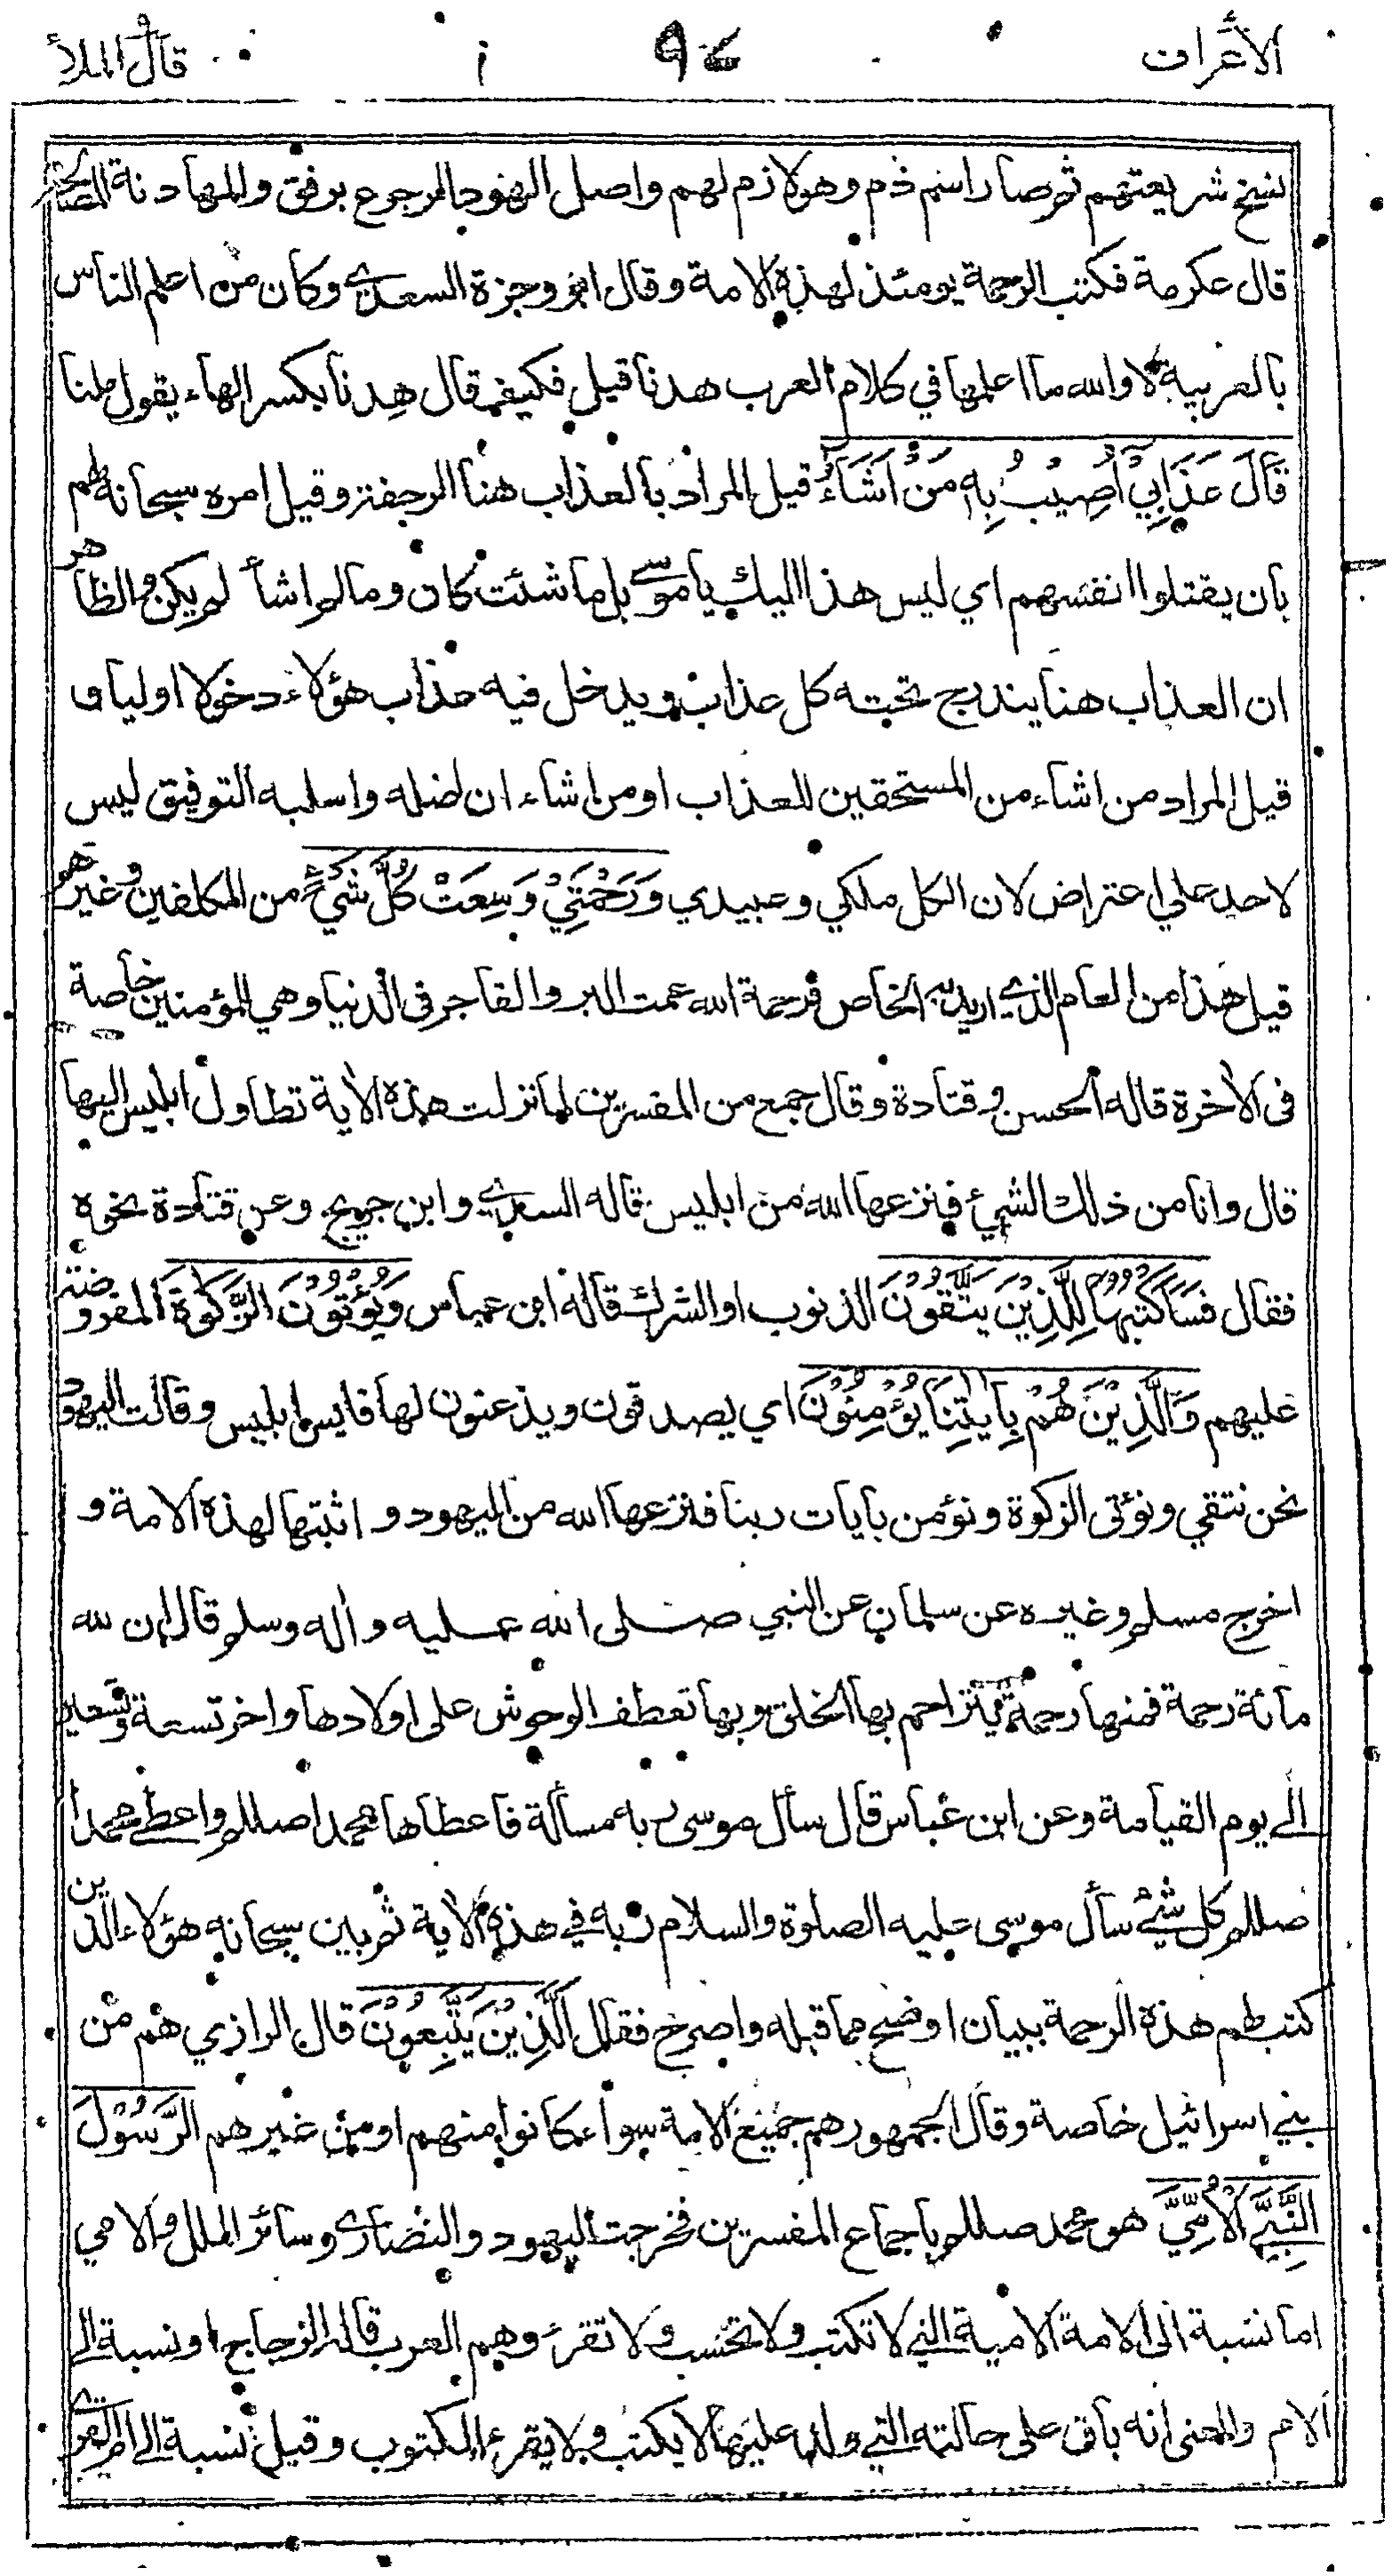 الأعراف ٩٤ قال الملأ
نسخ شريعتهم ثم صار اسم ذم وهو لازم لهم واصل الهود الرجوع برفق والمهادنة المصالحة
قال عكرمة فكتب الرحمة يومئذ لهذه الامة وقال ابو وجزة السعدي وكان من اعلم الناس
بالعربية لا والله ما اعلمها في كلام العرب هدنا قيل فكيف قال هِدنا بكسر الهاء يقول ملنا
قَالَ عَذَابِيْ اُصِيْبُ بِهٖ مَنْ اَشَآءُ قيل المراد بالعذاب هنا الرجفة وقيل امره سبحانه لهم
بان يقتلوا انفسهم اي ليس هذا اليك يا موسى بل ما شئت كان وما لم اشأ لم يكن والظاهر
ان العذاب هنا يندرج تحته كل عذاب ويدخل فيه عذاب هؤلاء دخولا اوليا و
قيل المراد من اشاء من المستحقين للعذاب او من اشاء ان اضله واسلبه التوفيق ليس
لاحد علي اعتراض لان الكل ملكي وعبيدي وَرَحْمَتِيْ وَسِعَتْ كُلَّ شَيْءٍ من المكلفين وغيرهم
قيل هذا من العام الذي اريد به الخاص فرحمة الله عمت البر والفاجر في الدنيا وهي للمؤمنين خاصة
في الاخرة قاله الحسن وقتادة وقال جمع من المفسرين لما نزلت هذه الاية تطاول ابليس اليها
قال وانا من ذلك الشيء فنزعها الله من ابليس قاله السدي وابن جريج وعن قتادة نحوه
فقال فَسَاَكْتُبُهَا لِلَّذِيْنَ يَتَّقُوْنَ الذنوب او الشرك قاله ابن عباس وَيُؤْتُوْنَ الزَّكٰوةَ المفروضة
عليهم وَالَّذِيْنَ هُمْ بِاٰيٰتِنَا يُؤْمِنُوْنَ اي يصدقون ويذعنون لها فايس ابليس وقالت اليهود
نحن نتقي ونؤتى الزكوة ونؤمن بايات ربنا فنزعها الله من اليهود واثبتها لهذه الامة و
اخرج مسلم وغيره عن سلمان عن النبي صلى الله عليه واله وسلم قال ان لله
مائة رحمة فمنها رحمة يتراحم بها الخلق وبها تعطف الوحوش على اولادها واخر تسعة وتسعين
الى يوم القيامة وعن ابن عباس قال سأل موسى ربه مسألة فاعطاها محمدا صللم واعطى محمدا
صللم كل شيء سأل موسى عليه الصلوة والسلام ربه في هذه الاية ثم بين سبحانه هؤلاء الذين
كتب لهم هذه الرحمة ببيان اوضح مما قبله واصرح فقال اَلَّذِيْنَ يَتَّبِعُوْنَ قال الرازي هم من
بني اسرائيل خاصة وقال الجمهور هم جميع الامة سواء كانوا منهم او من غيرهم الرَّسُوْلَ
النَّبِيَّ الْاُمِّيَّ هو محمد صللم باجماع المفسرين فخرجت اليهود والنصارى وسائر الملل والامي
اما نسبة الى الامة الامية التي لا تكتب ولا تحسب ولا تقرء وهم العرب قاله الزجاج او نسبة الى
الام والمعنى انه باق على حالته التي ولد عليها لا يكتب ولا يقرء المكتوب وقيل نسبة الى ام القرى